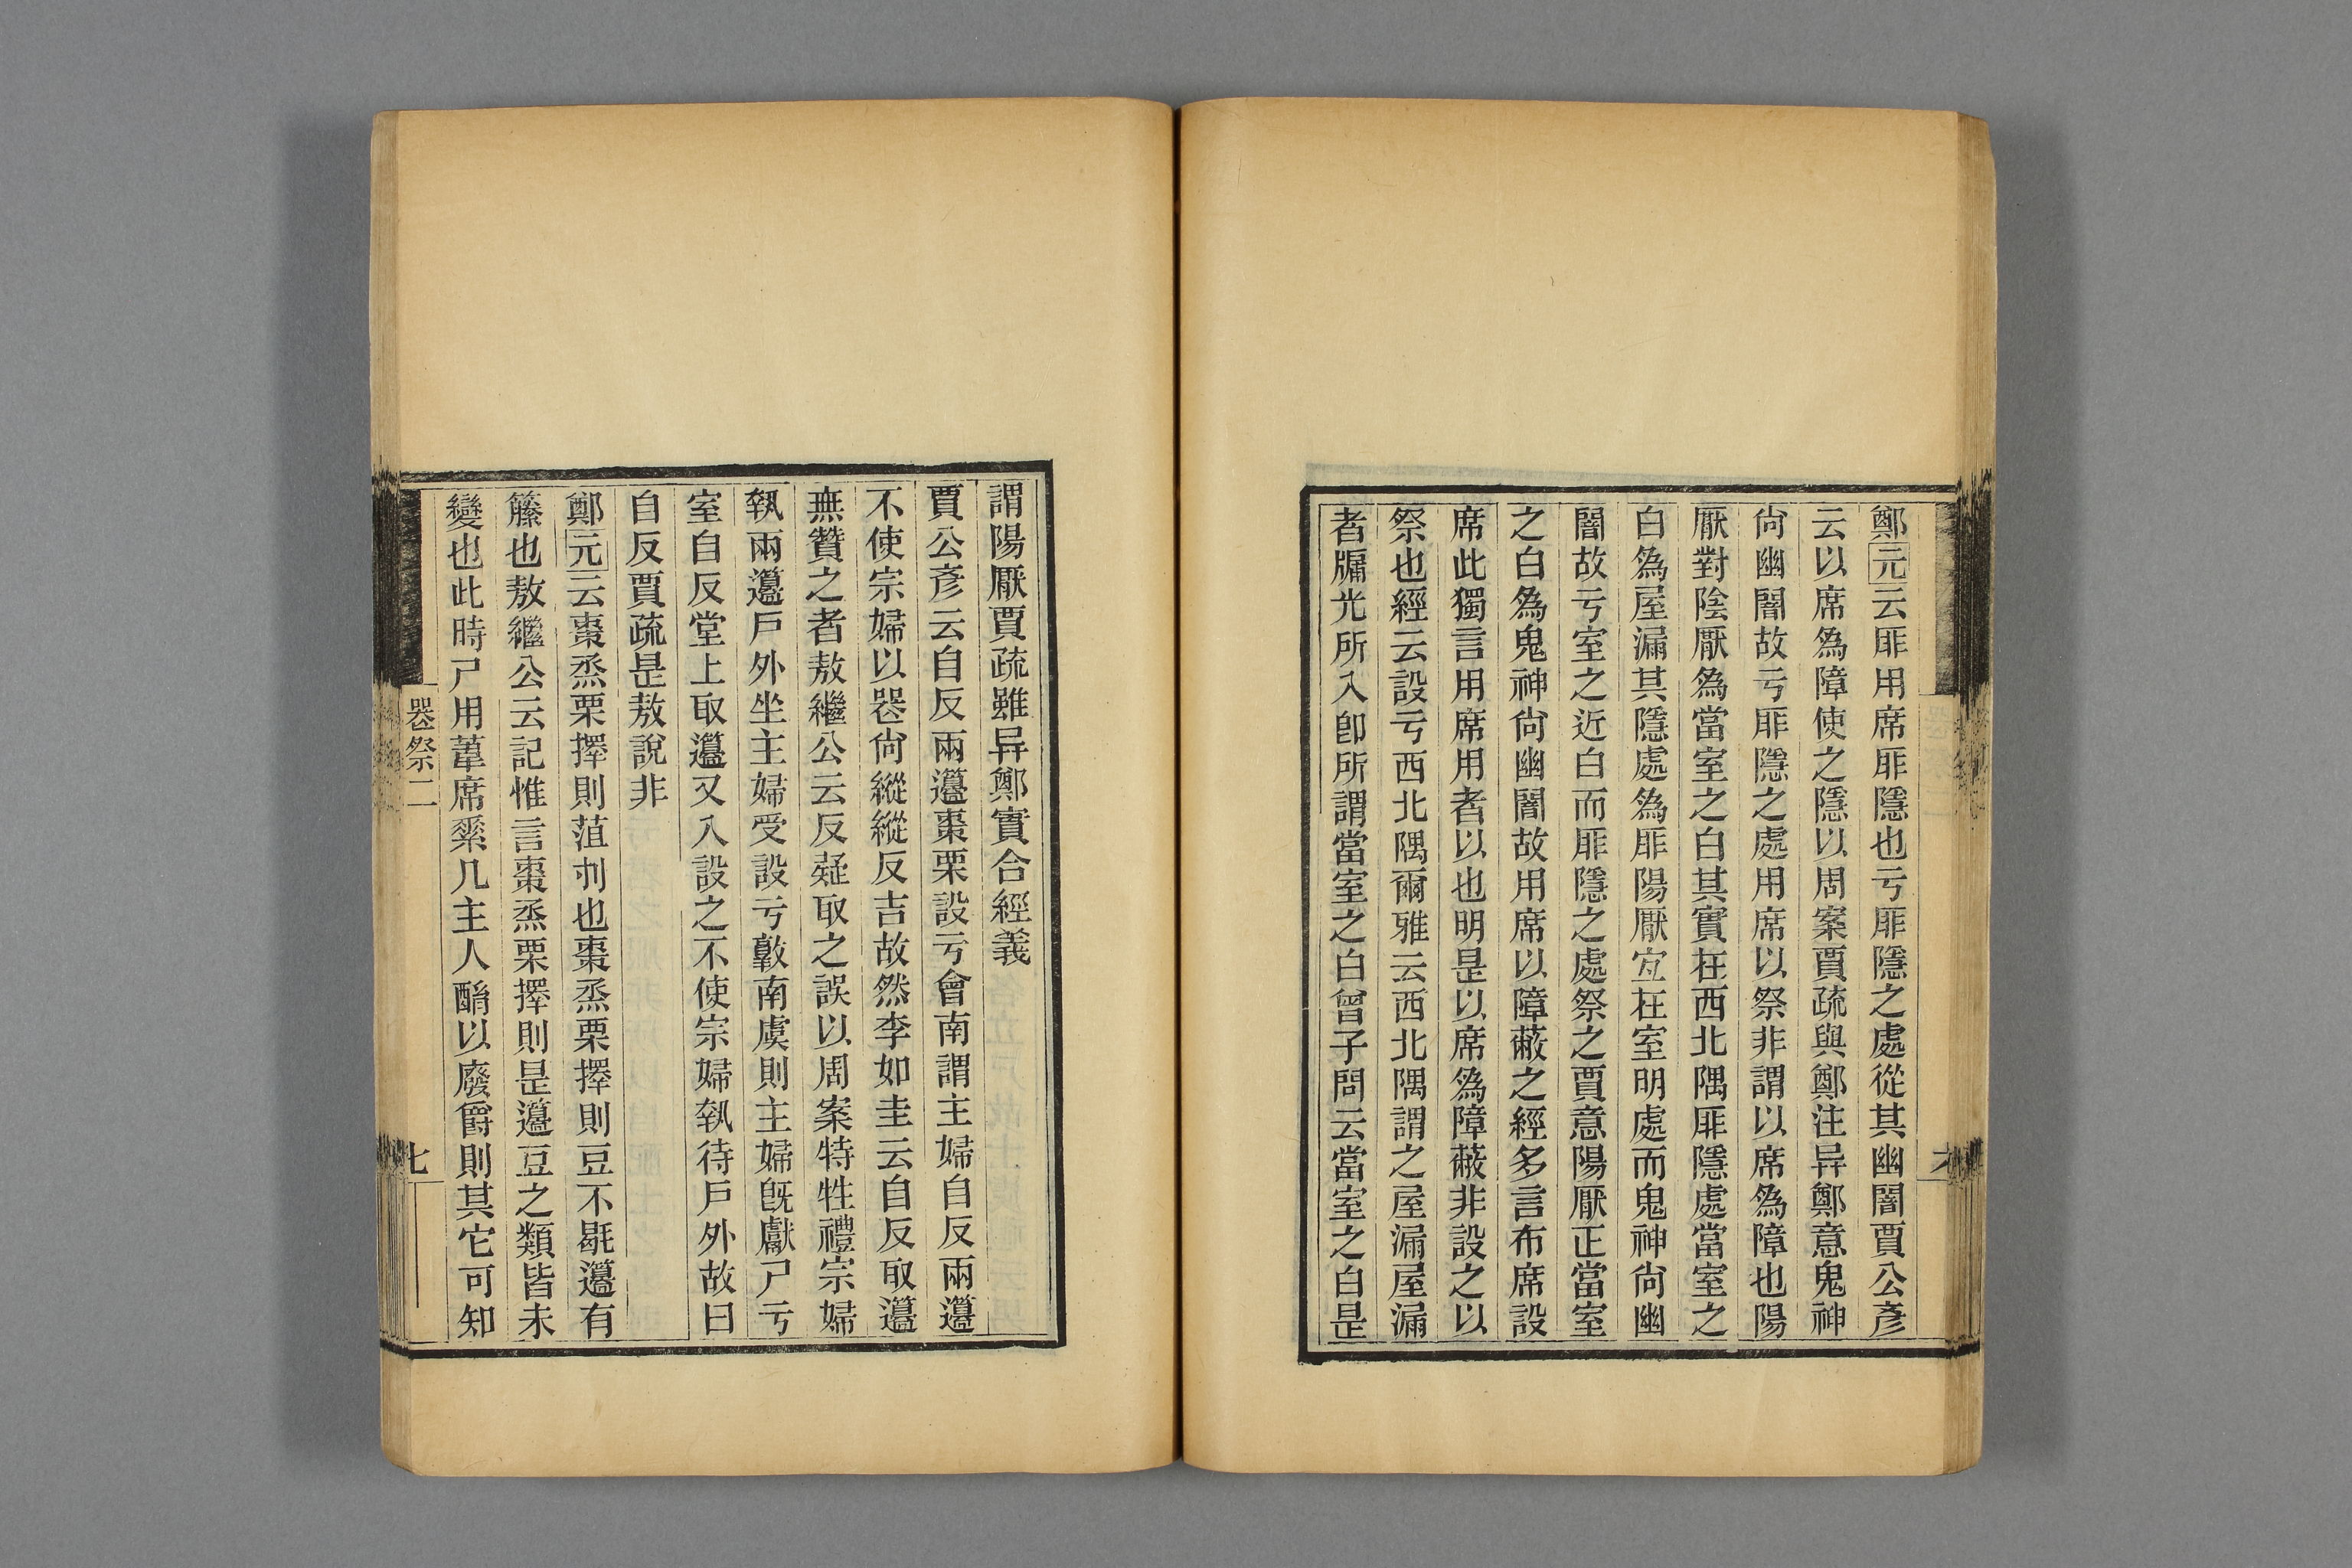 鄭元云厞用席厞隱也亏厞隱之處從其幽闇賈公彥
云以席爲障使之隱以周案賈疏與鄭注异鄭意鬼神
尙幽闇故亏厞隱之處用席以祭非謂以席爲障也陽
厭對陰厭爲當室之白其實在西北隅厞隱處當室之
白爲屋漏其隱處爲厞陽厭宐在室明處而鬼神尙幽
闇故亏室之近白而厞隱之處祭之賈意陽厭正當室
之白爲鬼神尙幽闇故用席以障蔽之經多言布席設
席此獨言用席用者以也明是以席爲障蔽非設之以
祭也經云設亏西北隅爾雅云西北隅謂之屋漏屋漏
者牖光所入卽所謂當室之白曾子問云當室之白是
謂陽厭賈疏雖异鄭實合經義
賈公彥云自反兩籩棗栗設亏會南謂主婦自反兩籩
不使宗婦以喪尙縱縱反吉故然李如圭云自反取籩
無贊之者敖繼公云反疑取之誤以周案特牲禮宗婦
執兩籩戶外坐主婦受設亏敦南虞則主婦旣獻尸亏
室自反堂上取籩又入設之不使宗婦執待戶外故曰
自反賈疏是敖說非
鄭元云棗烝栗擇則菹刌也棗烝栗擇則豆不楬籩有
籐也敖繼公云記惟言棗烝栗擇則是籩豆之類皆未
變也此時尸用葦席素几主人酳以廢爵則其它可知
喪祭二
七